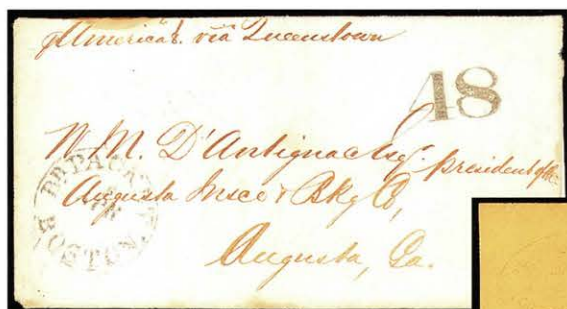 America s. via Queenstown
48
W. M. D'Antignac Esqr. President of the
Augusta Insce & Bkg Co,
Augusta, Ga.
BR. PACKET
BOSTON